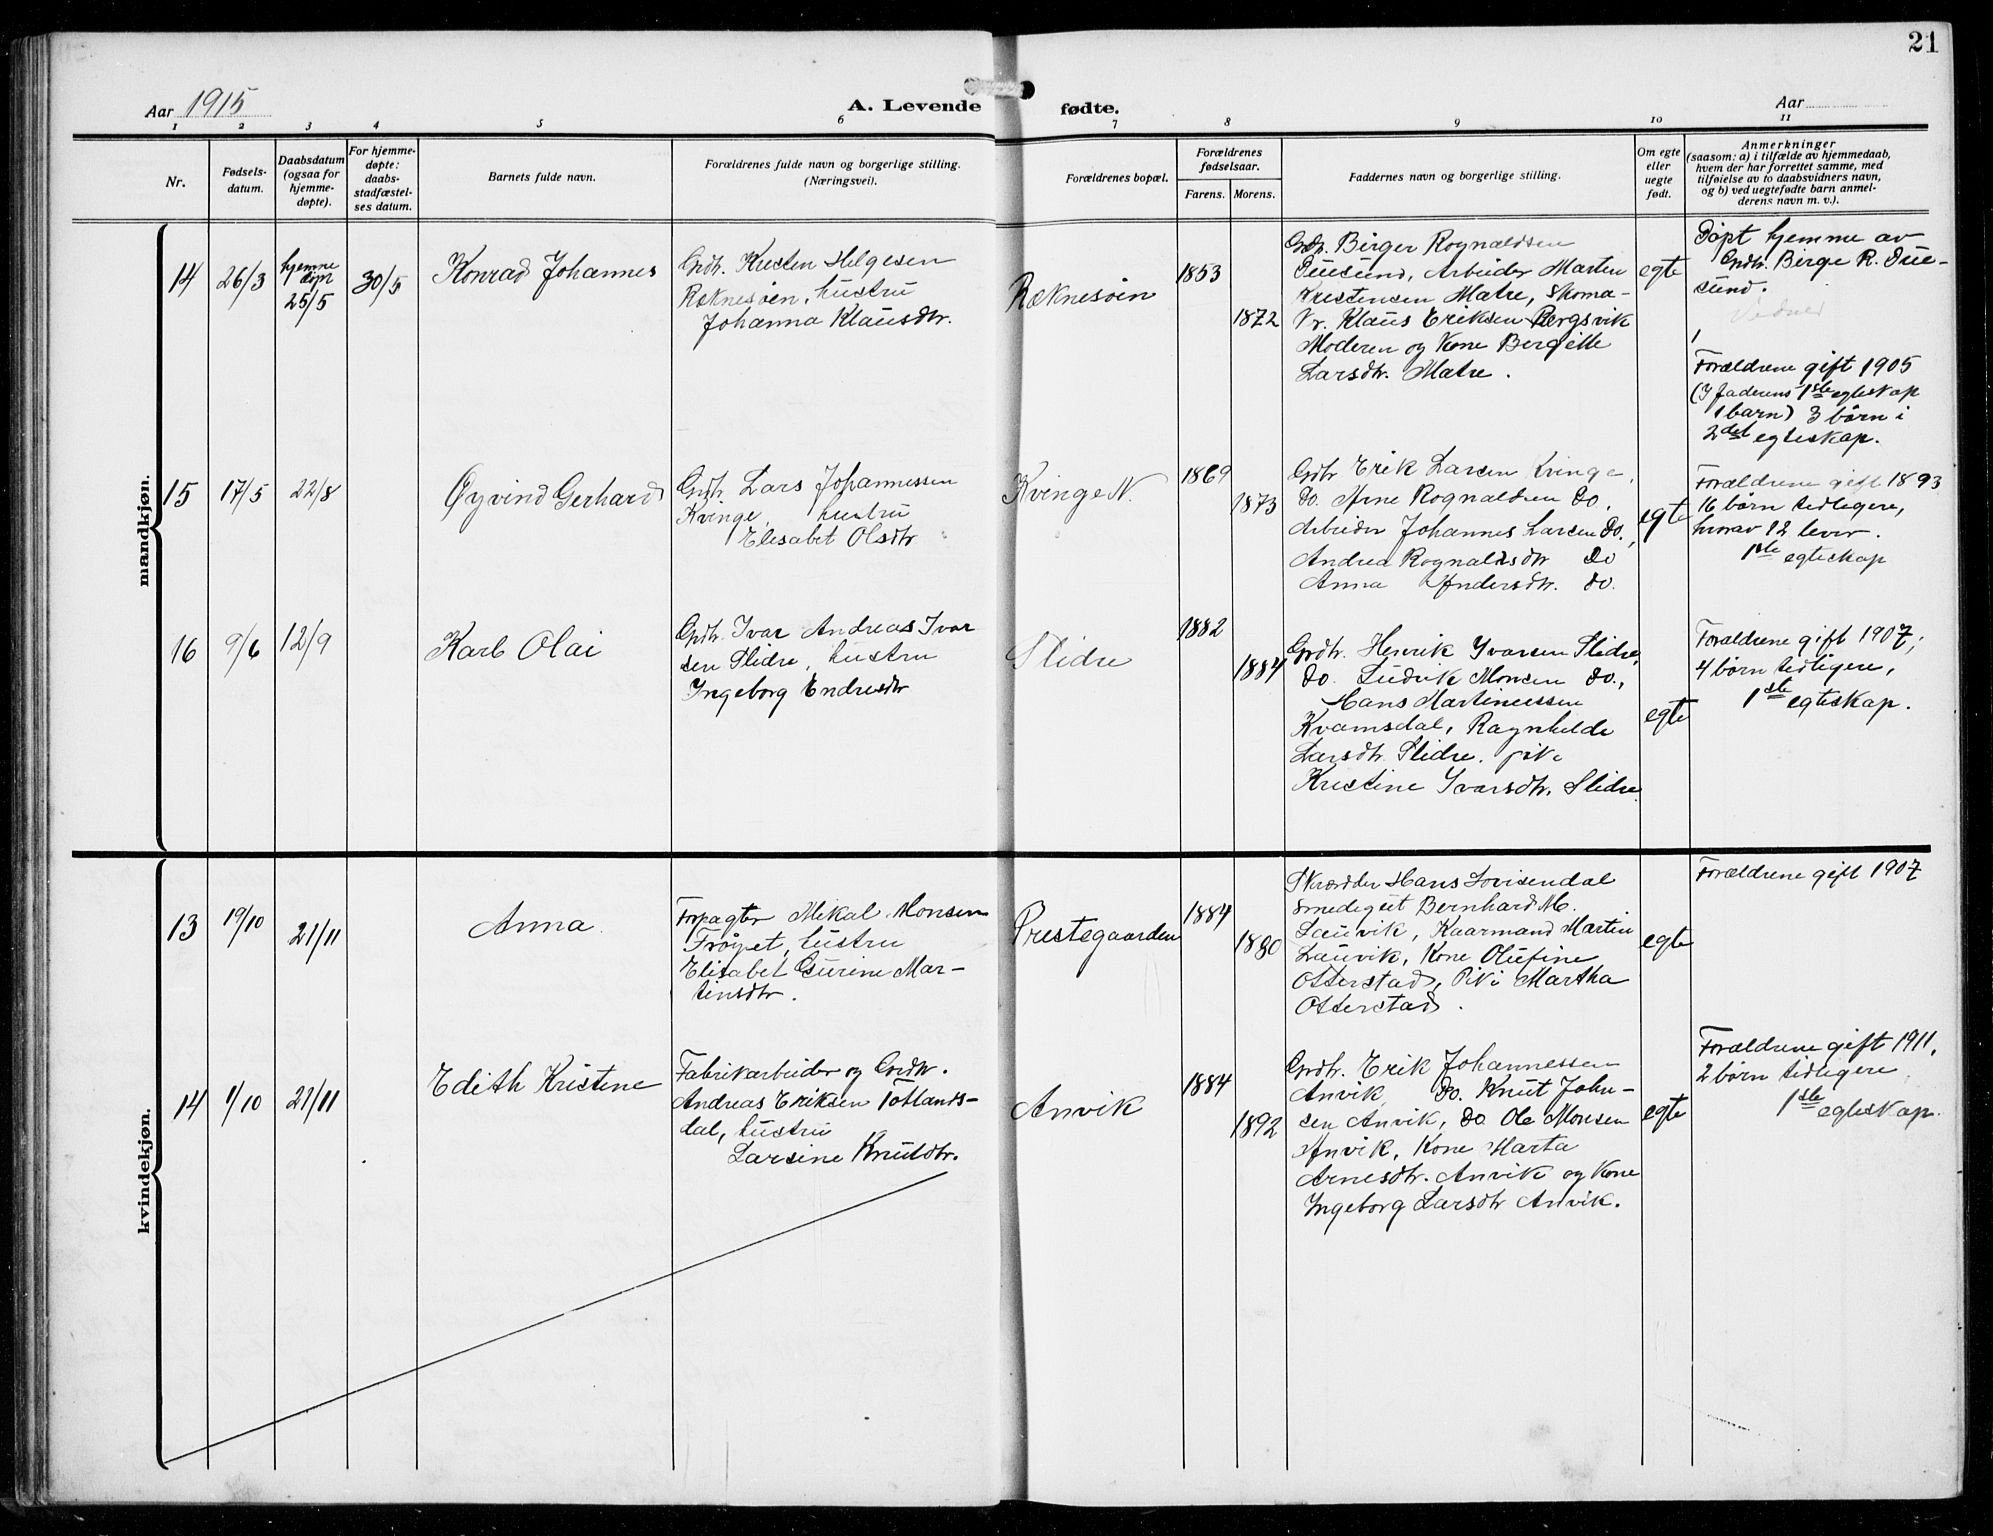 21
Aar 1915
A. Levende fødte.
Aar
1 2 3 4 5 6 7 8 9 10 11
Nr.
Fødsels-
datum.
Daabsdatum
(ogsaa for
hjemme-
døpte).
For hjemme-
døpte:
daabs-
stadfæstel-
ses datum.
Barnets fulde navn.
Forældrenes fulde navn og borgerlige stilling.
(Næringsvei).
Forældrenes bopæl.
Forældrenes
fødselsaar.
Farens. Morens.
Faddernes navn og borgerlige stilling.
Om egte
eller
uegte
født.
Anmerkninger
(saasom: a) i tilfælde av hjemmedaab,
hvem der har forrettet samme, med
tilføielse av to daabsvidners navn,
og b) ved uegtefødte barn anmel-
derens navn m. v.).
mandkjøn.
14 26/3
hjemme
døpt
25/5
30/5
Konrad Johannes
Grdr. Kristen Helgesen
Reknesøen, hustru
Johanna Klausdtr.
Reknesøen
1853
1872
Grdr. Birger Rognaldsen
Duesund, Arbeider Marten
Kristensen Matre, Skoma-
kr. Klaus Eriksen Bergsvik
Moderen og Kone Bergitte
Larsdtr. Matre.
egte
Døpt hjemme av
Grdr. Birge R. Due-
sund.
Forældrene gift 1905
(I faderens 1ste egteskap
1 barn) 3 børn i
2det egteskap.
15 17/5 22/8
Øyvind Gerhard
Grdr. Lars Johannessen
Kvinge, hustru
Elisabet Olsdtr
Kvinge N.
1869
1873
Grdr Erik Larsen Kvinge,
do. Arne Rognaldsen do,
Arbeider Johannes Larsen do.,
Andrea Rognaldsdtr do
Anna Andersdtr. do.
egte
Forældrene gift 1893
16 børn tidligere,
hvorav 12 lever.
1ste egteskap
16 9/6 12/9
Karl Olai
Grdr. Ivar Andreas Ivar
sen Slidre, hustru
Ingeborg Endresdtr
Slidre
1882
1884
Grdr. Henrik Ivarsen Slidre,
do. Ludvik Monsen do.,
Hans Martinussen
Kvamsdal, Ragnhilde
Larsdtr. Slidre. pike
Kristine Ivarsdtr. Slidre.
egte
Forældrene gift 1907,
4 børn tidligere,
1ste egteskap.
kvindekjøn.
13 19/10 21/11
Anna
Forpagter Mikal Monsen
Frøyset, hustru
Elisabet Gurine Mar-
tinsdtr.
Prestegaarden
1884
1880
Skrædder Hans Lovisendal
Smedegut Bernhard M.
Lauvik, Kaarmand Martin
Lauvik, Kone Olufine
Otterstad, Pike Martha
Otterstad.
egte
Forældrene gift 1907
14 1/10 21/11
Edith Kristine
Fabrikarbeider og Grdr.
Andreas Eriksen Totlands-
dal, hustru
Larsine Knutdtr.
Anvik
1884
1892
Grdr. Erik Johannessen
Anvik, do. Knut John-
sen Anvik, do Ole Monsen
Anvik, Kone Marta
Arnesdtr. Anvik og Kone
Ingeborg Larsdtr Anvik.
egte
Forældrene gift 1911,
2 børn tidligere
1ste egteskap.